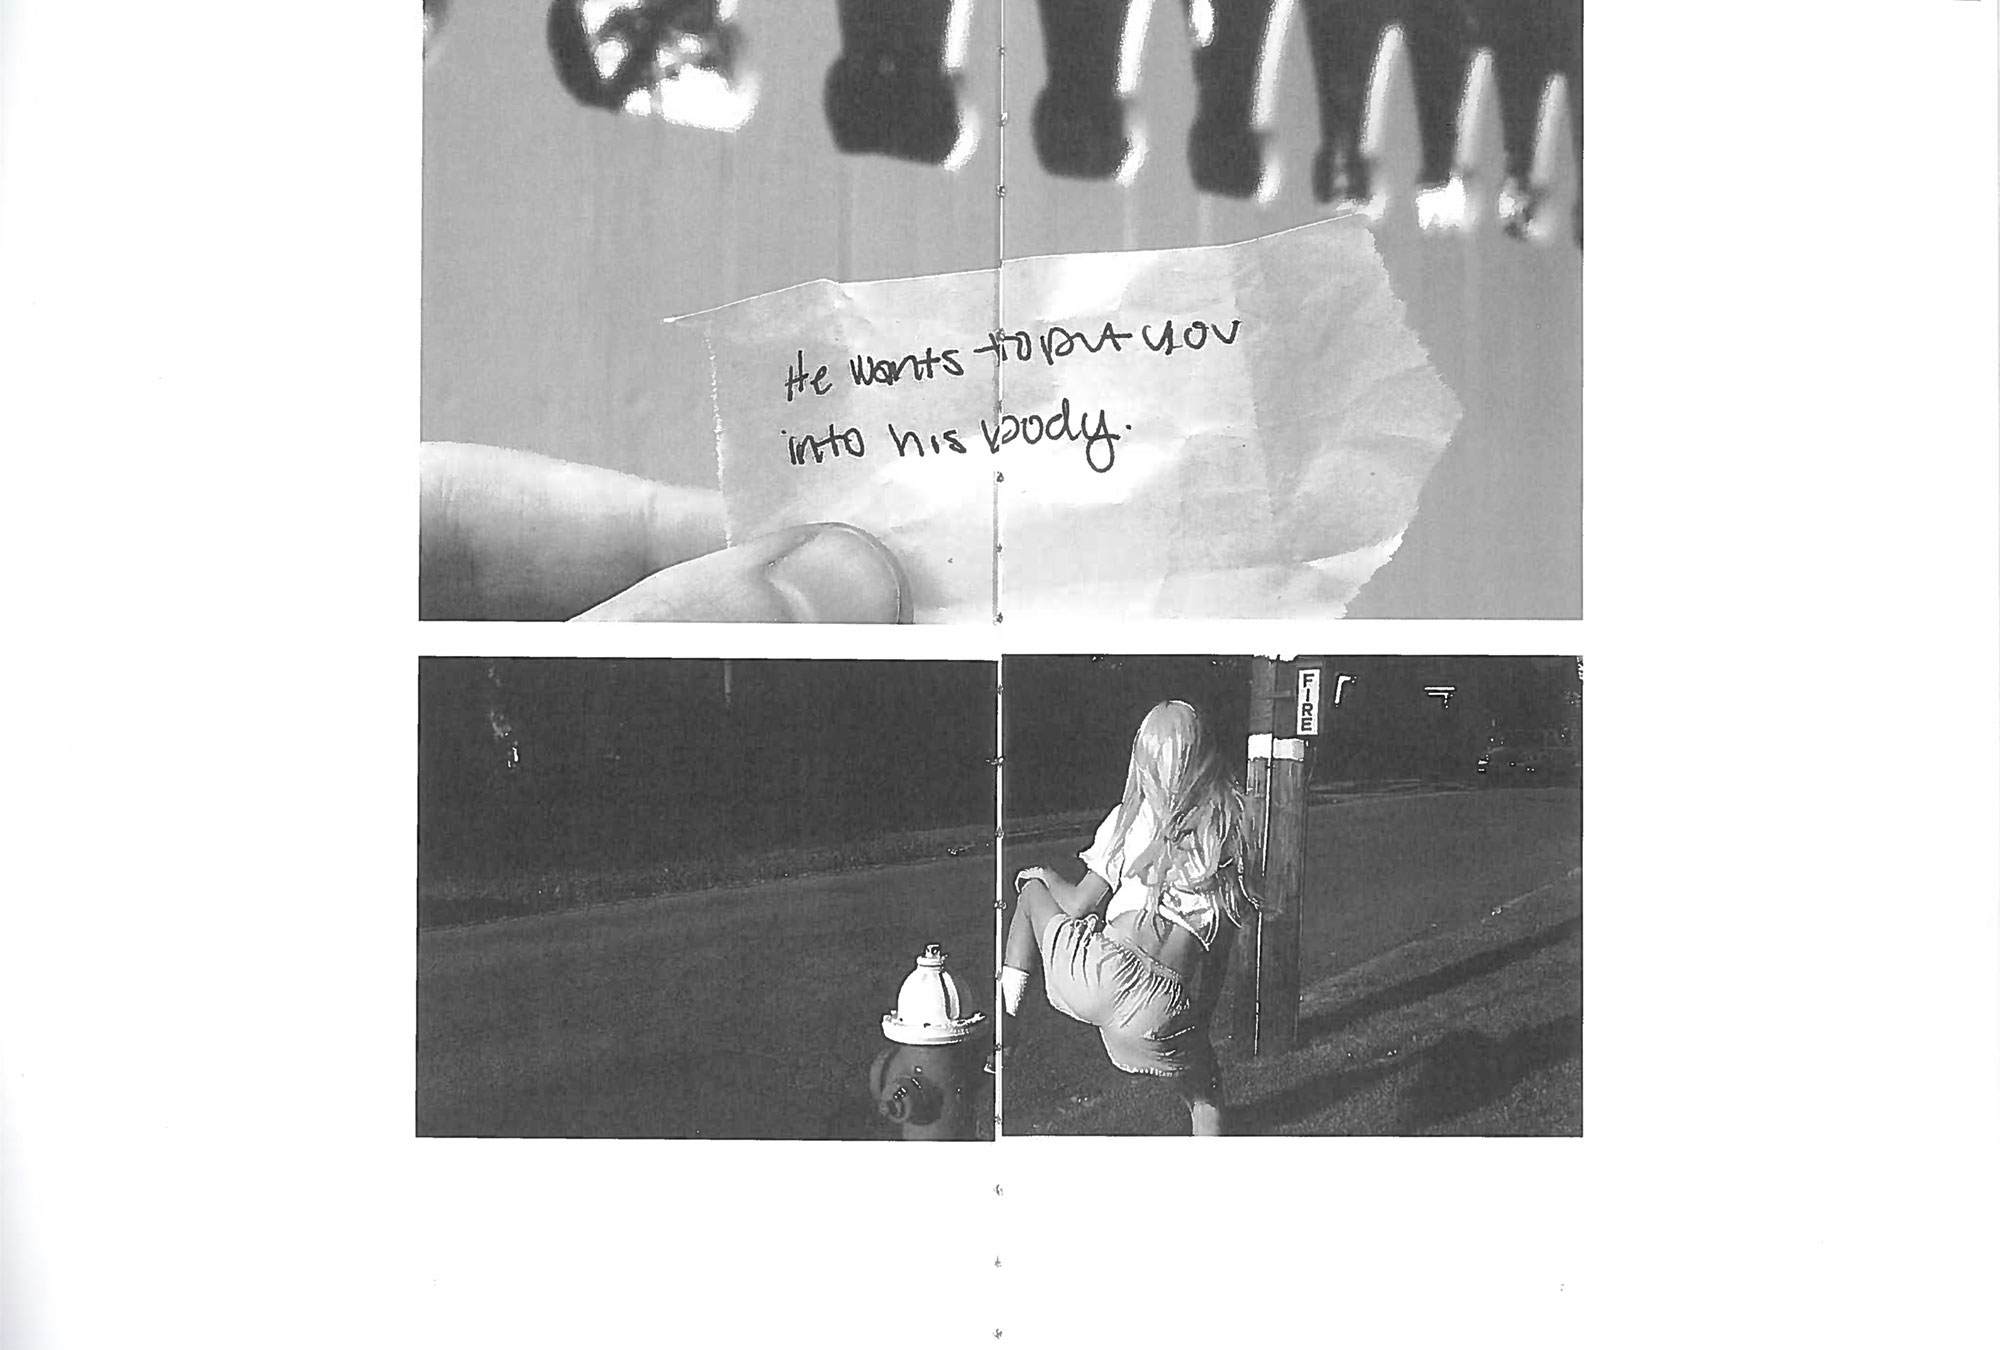 He wants to put you
into his body.
FIRE